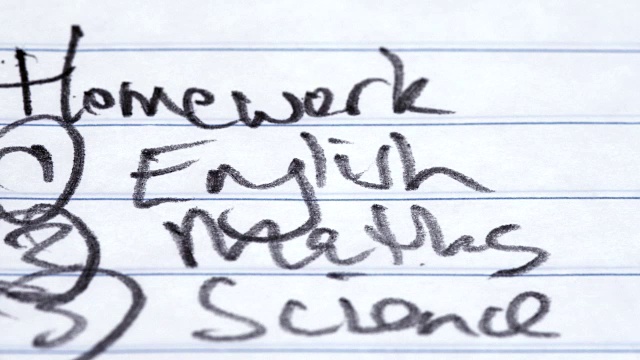 Homework
1 English
2 Maths
3 Science